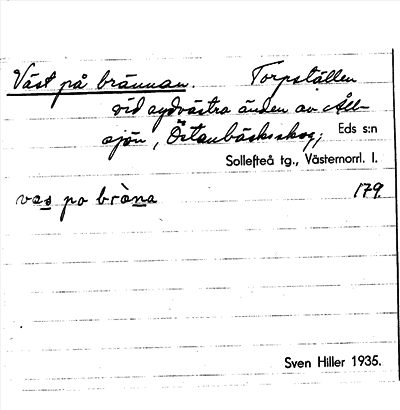 Väst på brännan. Torpställen
vid sydvästra änden av Åll-
sjön, Östanbäcksskog; Eds s:n
Sollefteå tg., Västernorrl. l.
vas po bràna 179.
Sven Hiller 1935.